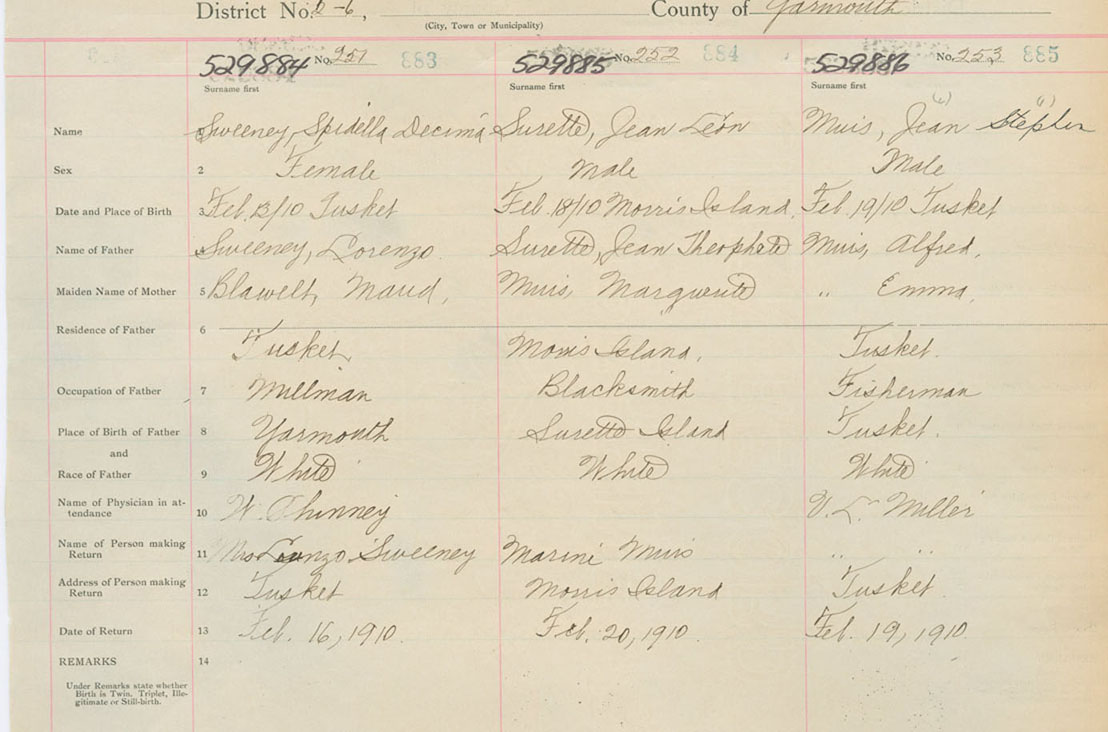 District No. County of Yarmouth
(City, Town or Municipality)
529884 No. 251 883 529885 No. 252 884 529886 No. 253 885
Surname first Surname first Surname first
Name 1 Sweeney, Spidella Decima Surette, Jean Léon Muis, Jean Stephen
Sex 2 Female Male Male
Date and Place of Birth 3 Feb. 13/10 Tusket Feb. 18/10 Morris Island. Feb. 19/10 Tusket
Name of Father 4 Sweeney, Lorenzo. Surette, Jean Theophile Muis, Alfred.
Maiden Name of Mother 5 Blawelt, Maud, Muis, Marguerite " Emma,
Residence of Father 6 Tusket Morris Island. Tusket.
Occupation of Father 7 Millman Blacksmith Fisherman
Place of Birth of Father 8 Yarmouth Surette Island Tusket.
and
Race of Father 9 White White White
Name of Physician in at-
tendance 10 W. Phinney Miller
Name of Person making
Return 11 Mrs Lorenzo Sweeney Marini Muis " "
Address of Person making
Return 12 Tusket Morris Island Tusket.
Date of Return 13 Feb. 16, 1910. Feb. 20, 1910. Feb. 19, 1910.
REMARKS 14
Under Remarks state whether
Birth is Twin, Triplet, Ille-
gitimate or Still-birth.